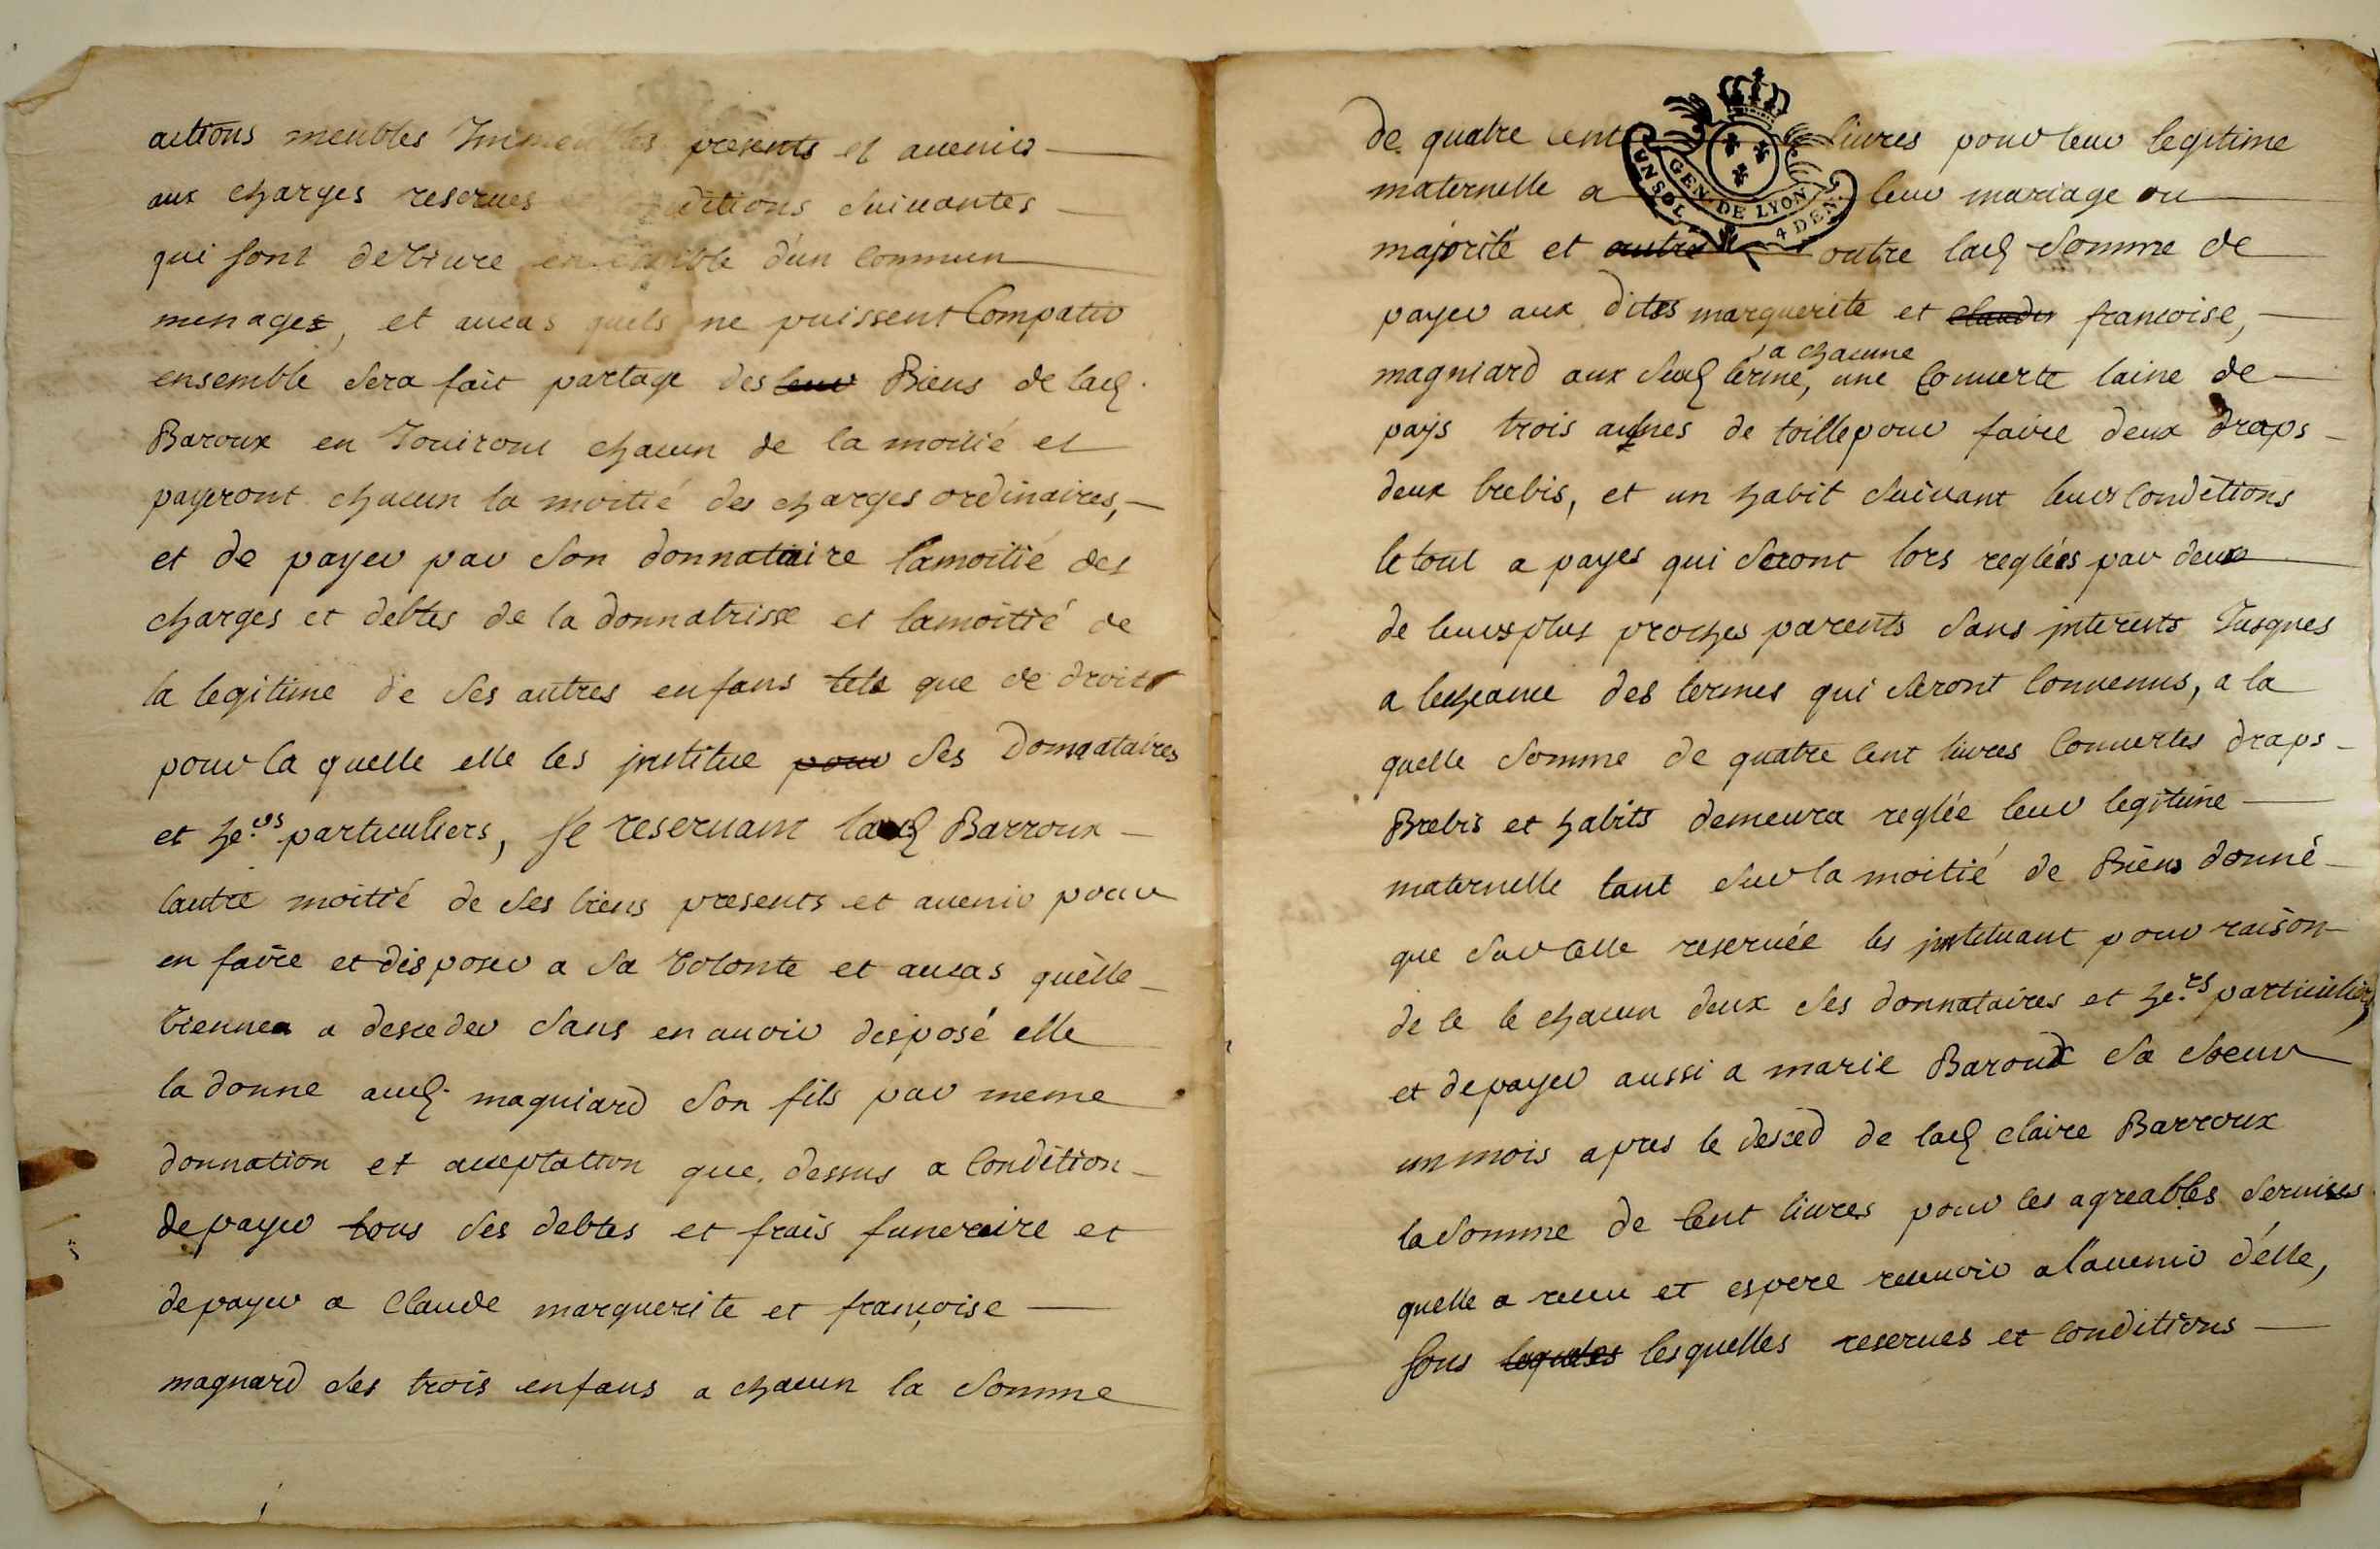 actions meubles Immeubles presents et auenirs
aux charges reserues et conditions suiuantes
qui sont deViure ensemble d'un commun
menages, et aucas quels ne puissent Compatir
ensemble sera fait partage des leur Biens de lad.
Baroux en Jouiront chacun de la moitié et
payeront chacun la moitié des charges ordinaires,
et de payer par son donnataire lamoitié des
charges et debtes de la donnatrisse et lamoitié de
la legitime de ses autres enfans tels que de droits
pour la quelle elle les jnstitue pour ses Donnataires
et he.rs particuliers, se reseruant lad. Barroux
lautre moitié de ses biens presents et auenir pour
en faire et disposer a sa Volonte et aucas quèlle
Viennea a desceder sans en auoir disposé elle
la donne aud. magniard son fils par meme
donnation et acceptation que dessus a Condition
depayer tous ses debtes et frais funeraire et
depayer a Claude marguerite et françoise
magnard ses trois enfans a chacun la somme
de quatre cent liures pour leur legitime
maternelle a leur mariage ou
majorité et autre outre lad. somme de
payer aux dites marguerite et claude francoise,
a chacune
magniard aux susd. terme, une Couuerte laine de
pays trois aulnes de toille pour faire deux draps
deux brebis, et un habit suiuant leurs Conditions
le tout a payes qui seront lors reglées par deux
de leurs plus proches parents sans jnterests Jusques
a lecheance des termes qui seront Conuenus, a la
quelle somme de quatre cent liures Couuertes draps
Brebis et habits demeura reglée leur legitime
maternelle tant sur la moitié de Biens donné
que sur celle reseruée les jnstituant pour raison
de le le chacun deux ses donnataires et he.rs particuliers
et depayer aussi a marie Baroux sa soeur
un mois apres le desced de lad. claire Barroux
la somme de Cent liures pour les agreables seruices
quelle a receu et espere receuoir a l'auenir d'elle,
sous lesquelles lesquelles reserues et conditions
GEN. DE LYON
UN SOL 4 DEN.